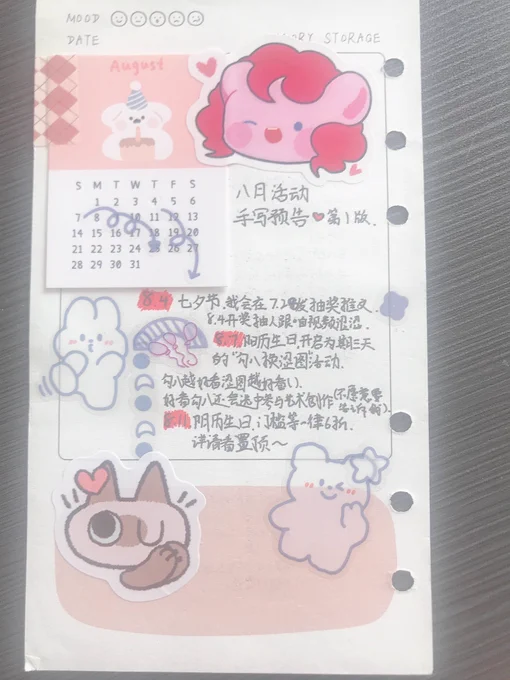 MOOD
DATE
STORAGE
August
S M T W T F S
1 2 3 4 5 6
7 8 9 10 11 12 13
14 15 16 17 18 19 20
21 22 23 24 25 26 27
28 29 30 31
八月活动
手写预告❤第1版.
8.4 七夕节,我会在7.28发抽奖推文
8.4开奖抽人跟
8.7 阳历生日,开启为期三天
的"勾八换涩图"活动.
勾八越好看涩图越好看(,
好看勾八还会选中参与艺术创作(不愿意
8.11 阴历生日,门槛等一律6折
详请看置顶~